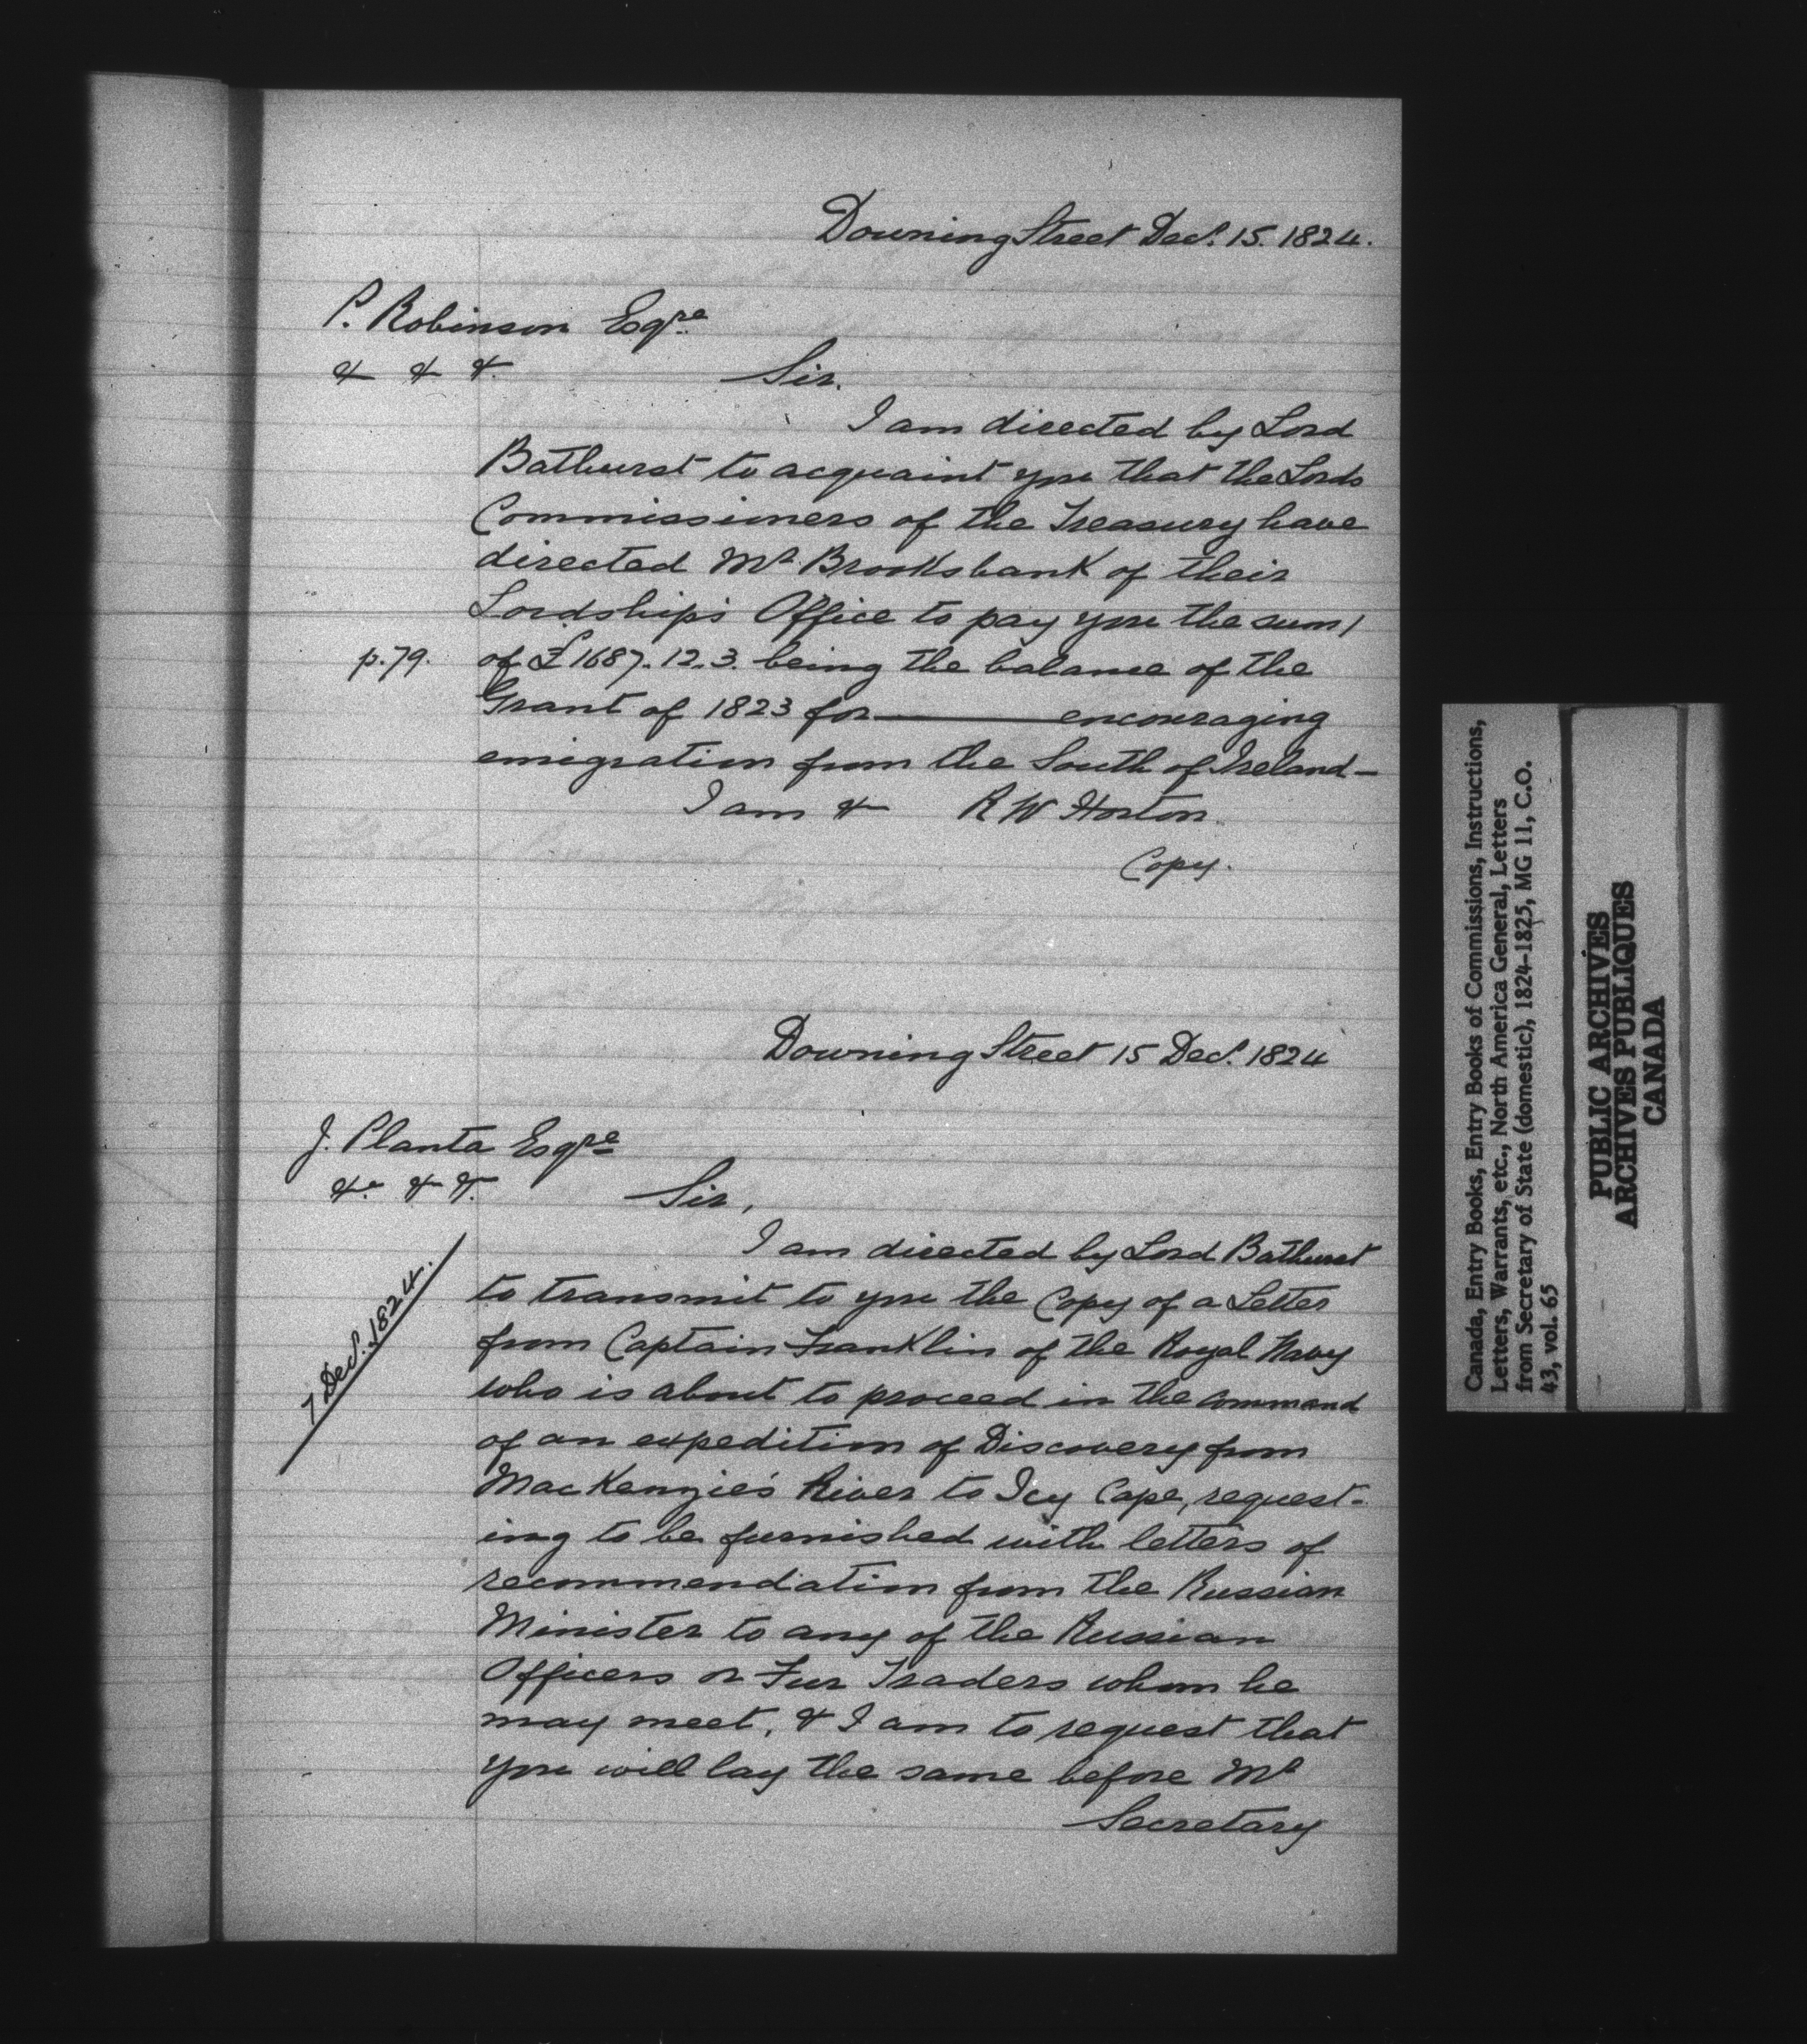 Downing Street Decr. 15. 1824.
P. Robinson Esqre
& & &.
Sir.
I am directed by Lord
Bathurst to acquaint you that the Lords
Commissioners of the Treasury have
directed Mr Brooksbank of their
Lordship's Office to pay you the sum
p.79. of £1687.12.3. being the balance of the
Grant of 1823 for encouraging
emigration from the South of Ireland—
I am & R W Horton
Copy.
Downing Street 15 Decr. 1824
J. Planta Esqre
&c & &.
Sir,
I am directed by Lord Bathurst
7 Decr. 1824.
to transmit to you the Copy of a Letter
from Captain Franklin of the Royal Navy
who is about to proceed in the command
of an expedition of Discovery from
MacKenzie's River to Icy Cape, request-
ing to be furnished with letters of
recommendation from the Russian
Minister to any of the Russian
Officers or Fur Traders whom he
may meet, & I am to request that
you will lay the same before Mr
Secretary
Canada, Entry Books, Entry Books of Commissions, Instructions,
Letters, Warrants, etc., North America General, Letters
from Secretary of State (domestic), 1824-1825, MG 11, C.O.
43, vol. 65
PUBLIC ARCHIVES
ARCHIVES PUBLIQUES
CANADA